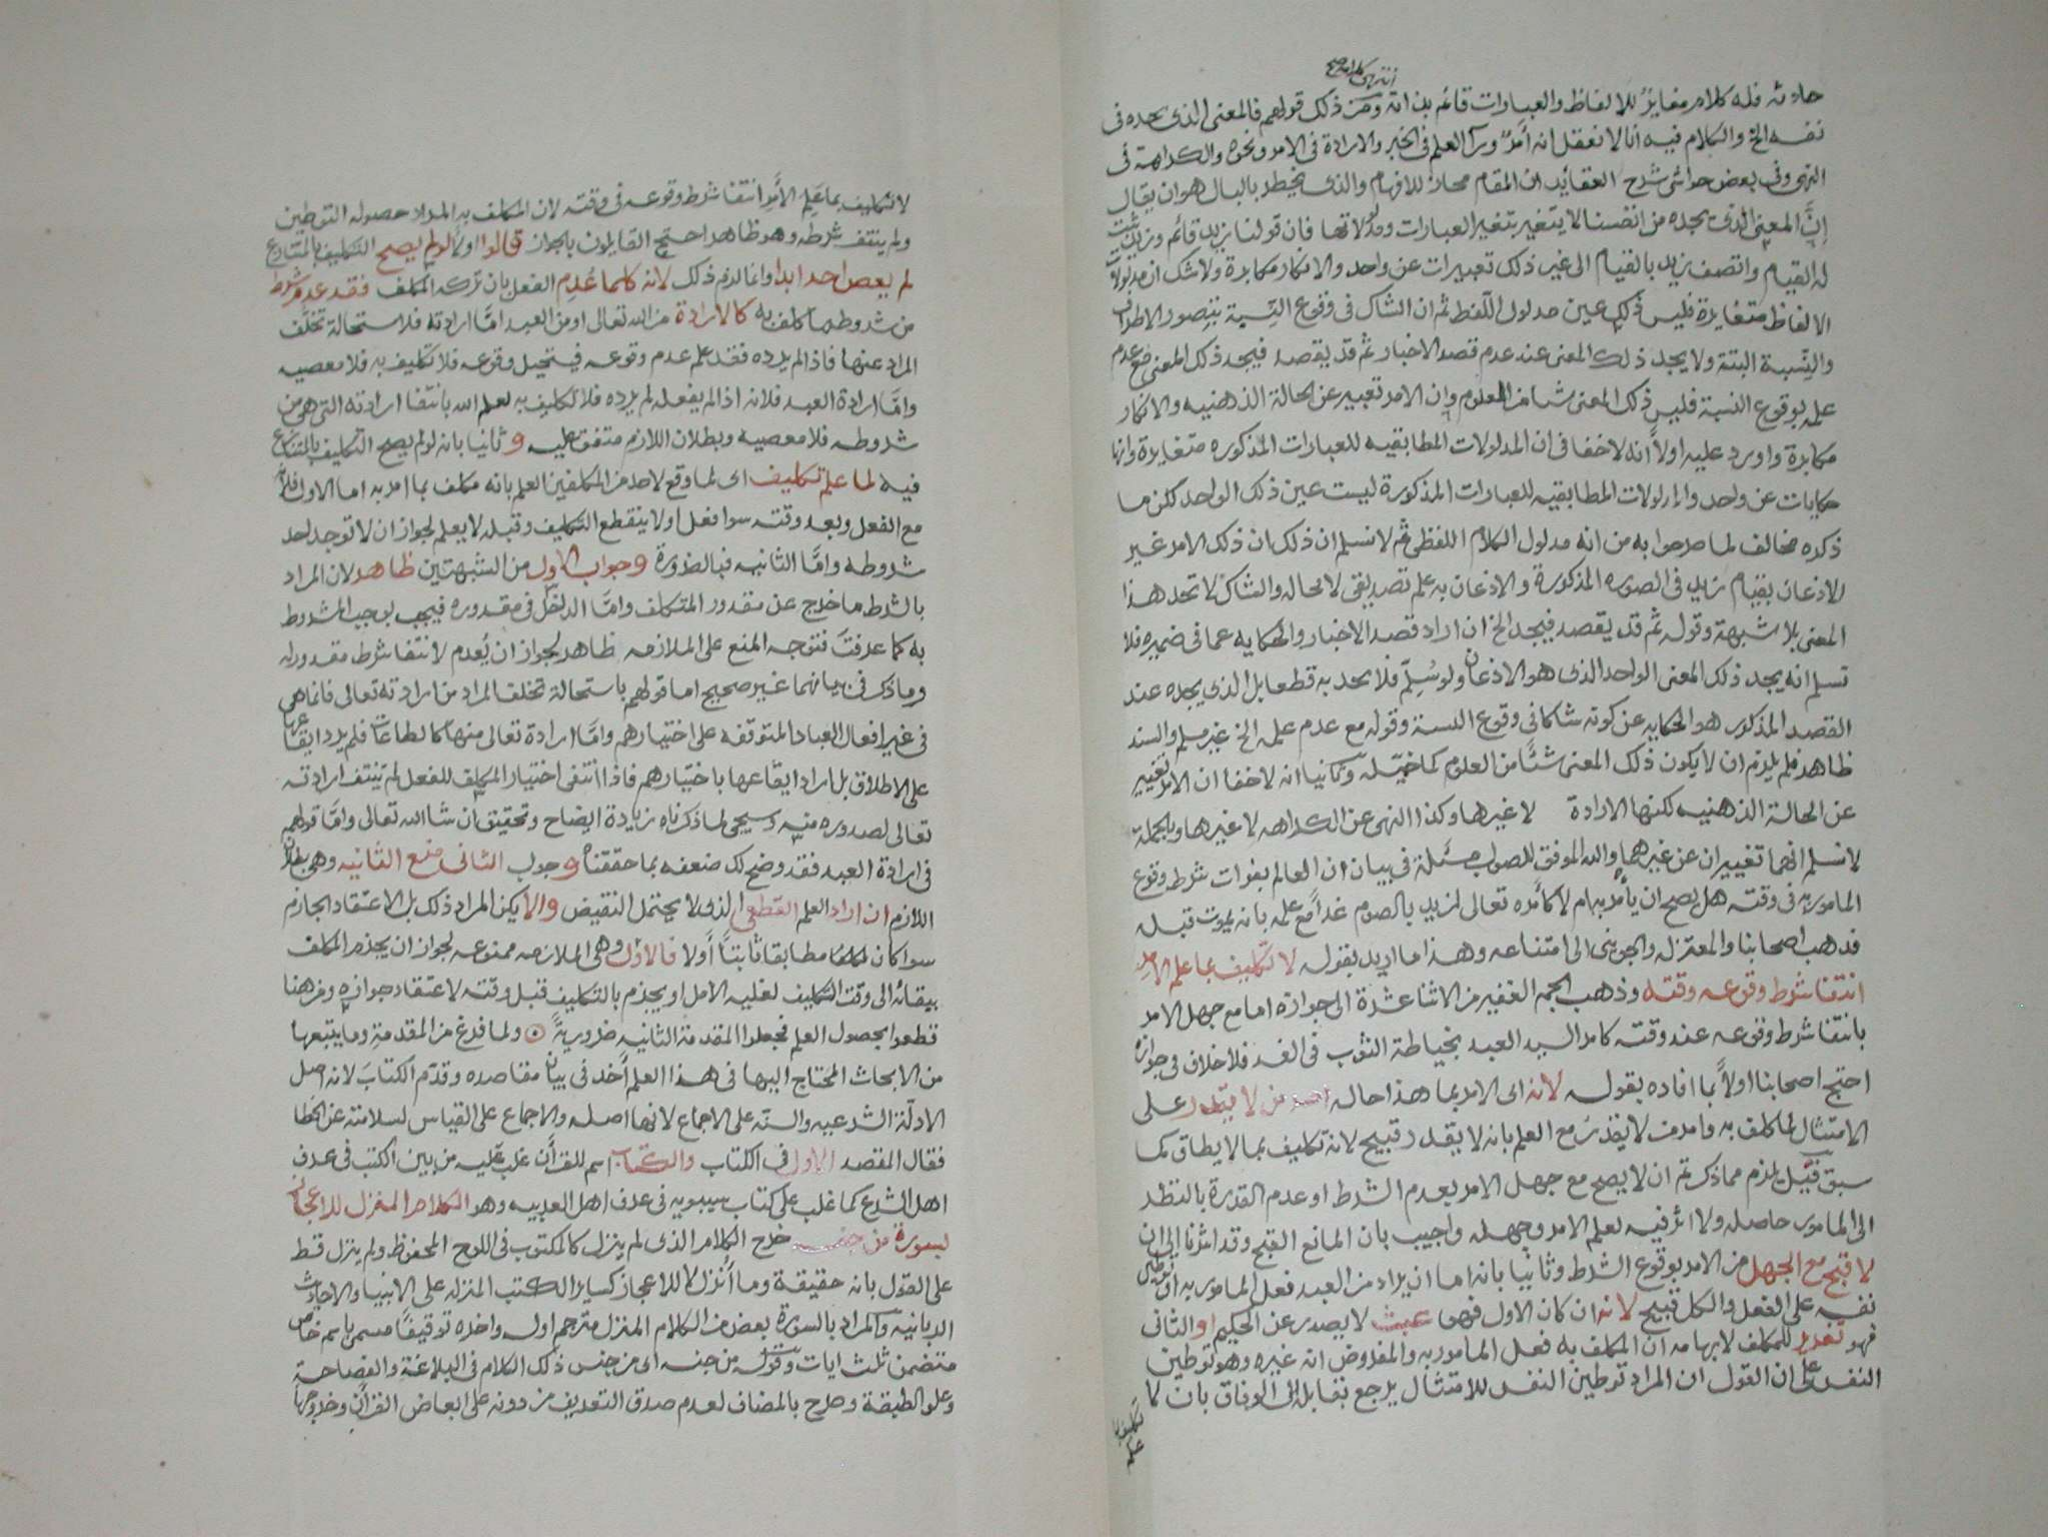 انتهى كلامه صح
حادثه فله كلام مغاير للالفاظ والعبارات قائم بذاته ومن ذلك قولهم فالمعنى الذى يجده فى
نفسه الخ والكلام فيه انا لا نعقل انه أمر ورآ العلم فى الخبر والارادة فى الامر ونحوه والكراهة فى
النهى وفى بعض حواشى شرح العقائد ان المقام محلا للافهام والذى يخطر بالبال هو ان يقال
إنّ المعنى الذى يجده من انفسنا لا يتغير بتغير العبارات ومدلولاتها فان قولنا زيد قائم وزيد يثبت
له القيام واتصف زيد بالقيام الى غير ذلك تعبيرات عن واحد والانكار مكابرة ولا شك ان مدلولات
الالفاظ متغايرة فليس ذلك عين مدلول اللفظ ثم ان الشاك فى وقوع النسبة يتصور الاطراف
والنسبة البتة ولا يجد ذلك المعنى عند عدم قصد الاخبار ثم قد يقصد فيجد ذلك المعنى مع عدم
علمه بوقوع النسبة فليس ذلك المعنى شيأ من المعلوم وان الامر تعبير عن الحالة الذهنيه والانكار
مكابرة واورد عليه اولاً انه لا خفا فى ان المدلولات المطابقيه للعبارات المذكوره متغايرة وانها
حكايات عن واحد والمدلولات المطابقيه للعبارات المذكورة ليست عين ذلك الواحد لكن ما
ذكره مخالف لما صرحوا به من انه مدلول الكلام اللفظى ثم لا نسلم ان ذلك ان ذلك الامر غير
الاذعان بقيام زيد فى الصوره المذكورة والاذعان به علم تصديقى لا محاله والشاك لا تجد هذا
المعنى بلا شبهة وقوله ثم قد يقصد فيجد الخ ان اراد قصد الاخبار والحكايه عما فى ضميره فلا
نسلم انه يجد ذلك المعنى الواحد الذى هو الاذعان ولو سُلِّم فلا يجد به قطعا بل الذى يجده عند
القصد المذكور هو الحكايه عن كونه شاكا فى وقوع النسبة وقوله مع عدم علمه الخ غير مسلم والسند
ظاهر فلم يلزم ان لا يكون ذلك المعنى شئاً من العلوم كما خيّله وثانيا انه لا خفا ان الامر تعبير
عن الحالة الذهنيه لكنها الارادة لا غيرها وكذا النهى عن الكراهه لا غيرها وبالجملة
لا نسلم انهما تغييران عن غيرهما والله الموفق للصواب مسئلة فى بيان ان العالم بفوات شرط وقوع
المامور به فى وقته هل يصح ان يأمر به ام لا كامره تعالى لزيد بالصوم غداً مع علمه بانه يموت قبله
فذهب اصحابنا والمعتزله والجوينى الى امتناعه وهذا ما اريد بقوله لا تكليف بما علم الامر
انتفا شرط وقوعه وقته وذهب الجم الغفير من الاثنا عشرة الى جوازه اما مع جهل الامر
بانتفا شرط وقوعه عند وقته كامر السيد العبد بخياطة الثوب فى الغد فلا خلاف فى جوازه
احتج اصحابنا اولاً بما افاده بقوله لانه اى الامر بما هذا حاله امر من لا يقدر على
الامتثال لما كلف به وامر من لا يقدر مع العلم بانه لا يقدر قبيح لانه تكليف بما لا يطاق كما
سبق قيل يلزم مما ذكرتم ان لا يصح مع جهل الامر بعدم الشرط او عدم القدرة بالنظر
الى المامور حاصله ولا اثر فيه لعلم الامر وجهله واجيب بان المانع القبح وقد اشرنا الى ان
لا قبح مع الجهل من الامر بوقوع الشرط وثانيا بانه اما ان يراد من العبد فعل المامور به او توطين
نفسه على الفعل والكل قبيح لانه ان كان الاول فهى عبث لا يصدر عن الحكيم او الثانى
فهو تغرير للمكلف لابهامه ان المكلف به فعل المامور به والمفروض انه غيره وهو توطين
النفس على ان القول ان المراد توطين النفس للامتثال يرجع نقابله الى الوفاق بان لا
تكليف بما
علم
لا تكليف بما عَلِم الأمِر انتفا شرط وقوعه فى وقته لان المكلف به المراد حصوله التوطين
ولم ينتف شرطه وهو ظاهر احتج القايلون بالجواز قالوا اولاً لو لم يصح التكليف بالمتنازع
لم يعص احد ابدا وانما لزم ذلك لانه كلما عُدِم الفعل بان تركه المكلف فقد عدم شرط
من شروط ما كلف به كالارادة من الله تعالى او من العبد امّا ارادته فلاستحالة تخلف
المراد عنها فاذ لم يرده فقد علم عدم وقوعه فيستحيل وقوعه فلا تكليف به فلا معصيه
وامّا ارادة العبد فلانه اذا لم يفعله لم يرده فلا تكليف به لعلم الله بانتفا ارادته التى هى من
شروطه فلا معصيه وبطلان اللازم متفق عليه و ثانيا بانه لو لم يصح التكليف بالمتنازع
فيه لما علم تكليف اى لما وقع لاحد من المكلفين العلم بانه مكلف بما امر به اما الاولى فلانه
مع الفعل وبعد وقته سوا فعل او لا ينقطع التكليف وقبله لا يعلم لجواز ان لا توجد احد
شروطه وامّا الثانيه فبالضرورة وجواب الاول من الشبهتين ظاهر لان المراد
بالشرط ما خرج عن مقدور المكلف وامّا الداخل فى مقدوره فيجب بوجوب المشروط
به كما عرفت فتوجه المنع على الملازمه ظاهر لجواز ان يُعدم لانتفا شرط مقدور له
وما ذكر فى بيانهما غير صحيح اما قولهم باستحالة تخلف المراد من ارادته تعالى فانما هى
فى غير افعال العباد المتوقفه على اختيارهم وامّا ارادة تعالى منها كالطاعات فلم يرد ايقاعها
على الاطلاق بل اراد ايقاعها باختيارهم فاذا انتفى اختيار المكلف للفعل لم تنتف ارادته
تعالى لصدوره منه وسيجى لما ذكرناه زيادة ايضاح وتحقيق ان شا الله تعالى وامّا قولهم
فى ارادة العبد فقد وضح لك ضعفه بما حققناه و جواب الثانى منع الثانيه وهى بطلان
اللازم ان اراد العلم القطعى الذى لا يحتمل النقيض والا يكن المراد ذلك بل الاعتقاد الجازم
سوا كان مطابقا ثابتاً أولا فالاولى وهى الملازمه ممنوعه لجواز ان يجزم المكلف
ببقائه الى وقت التكليف لغلبه الامل او يجزم بالتكليف قبل وقته لاعتقاد جوازه ومن هنا
قطعوا بحصول العلم فجعلوا المقدمة الثانيه ضروريةً ولما فرغ من المقدمة وما يتبعها
من الابحاث المحتاج اليها فى هذا العلم أخذ فى بيان مقاصده وقدّم الكتاب لانه اصل
الادلّة الشرعيه والسنّه على الاجماع لانها اصله والاجماع على القياس لسلامته عن الخطا
فقال المقصد الاول فى الكتاب والكتاب اسم للقرأن غلب عليه من بين الكتب فى عرف
اهل الشرع كما غلب على كتاب سيبويه فى عرف اهل العربيه وهو الكلام المنزل للاعجاز
بسورة من جنسه خرج الكلام الذى لم ينزل كالمكتوب فى اللوح المحفوظ ولم ينزل قط
على القول بانه حقيقة وما أُنزل لا للاعجاز كساير الكتب المنزله على الانبيا والاحاديث
الربانيه والمراد بالسورة بعض من الكلام المنزل مترجم اوله واخره توقيفًا مسمى باسم خاص
متضمن ثلث ايات وقوله من جنسه اى من جنس ذلك الكلام فى البلاغة والفصاحة
وعلو الطبقة وصرح بالمضاف لعدم صدق التعريف من دونه على ابعاض القرآن وخروجها